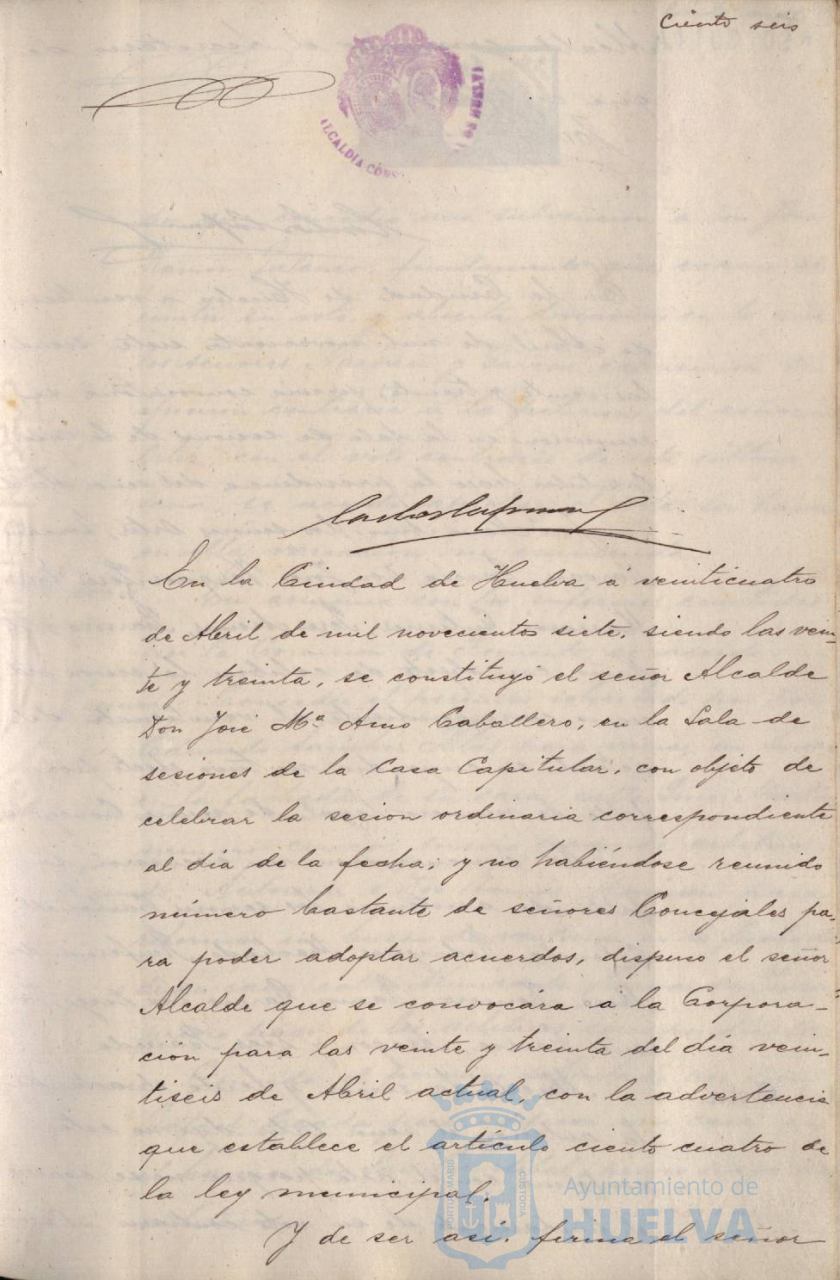 Ciento seis
ALCALDIA CONS
DE HUELVA
En la Ciudad de Huelva á veinticuatro
de Abril de mil novecientos siete, siendo las vein-
te y treinta, se constituyó el señor Alcalde
Don José Mª Amo Caballero, en la Sala de
sesiones de la Casa Capitular, con objeto de
celebrar la sesion ordinaria correspondiente
al día de la fecha; y no habiéndose reunido
número bastante de señores Concejales pa-
ra poder adoptar acuerdos, dispuso el señor
Alcalde que se convocára á la Corpora-
ción para las veinte y treinta del día vein-
tiseis de Abril actual, con la advertencia
que establece el artículo ciento cuatro de
la ley municipal.
Y de ser así, firma el señor
PORTUS MARIS
CUSTODIA
Ayuntamiento de
HUELVA